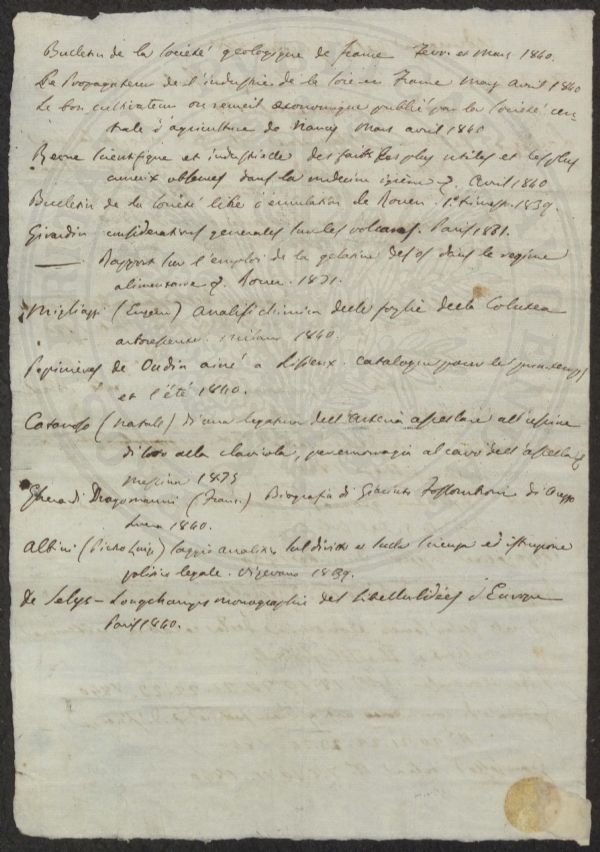 Bulletin de la Société géologique de france fevr. et Mars 1840.
Le Propagateur de l'industrie de la soie en France Mars avril 1840
Le bon cultivateur ou recueil œconomique publié par la Société cen-
trale d'agriculture de Nancy Mars avril 1840
Revue Scientifique et industrielle des faits les plus utiles et les plus
curieux obtenus dans la médecine avril 1840
Bulletin de la Société libre d'émulation de Rouen. 1839.
Girardin considerations generales sur les volcans. Paris 1831.
— Rapport sur l'emploi de la gelatine des os dans le regime
alimentaire Rouen. 1831.
(Eugenio) Analisi chimica delle foglie della Colutea
arborescens. Milano 1840.
Pepinières de Oudin ainé a Lisieux. Catalogue pour le printemps
et l'été 1840.
(Natale) di una legatura dell'arteria ascellare all'
di sotto della clavicola, per emorragia al cavo dell'ascella
Messina 1835
Gherardi Dragomanni (Franc.) Biografia di Giacinto
Lucca 1840.
Albini (Pietro Luigi) Saggio analitico sul diritto e sulla Scienza ed istruzione
politico legale. Vigevano 1839.
de Selys-Longchamps monographie des Libellulidées d'Europe
Paris 1840.